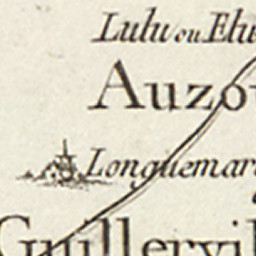 Lulu ou Elu
Auzou
Longuemar
Guillervil